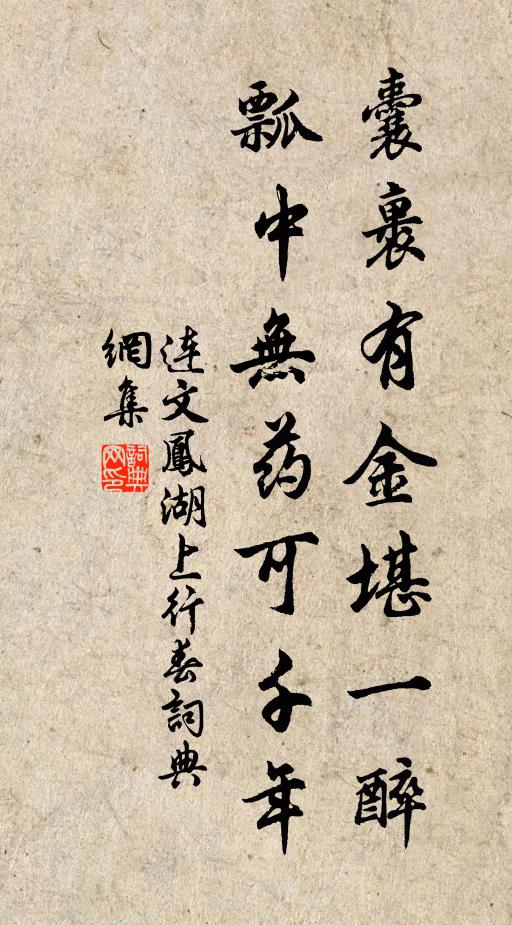 囊裹有金堪一醉
瓢中無药可千年
连文鳳湖上行春詞典
網集
詞典
网印